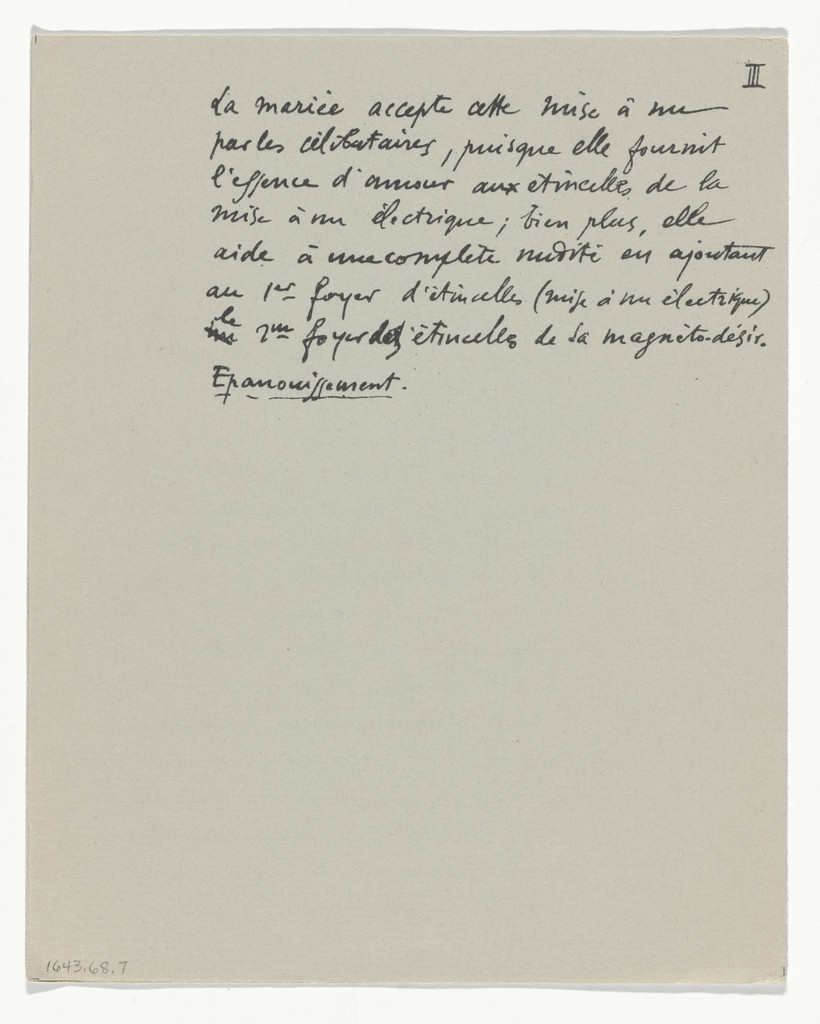 III
La mariée accepte cette mise à nu
par les célibataires, puisque elle fournit
l'essence d'amour aux étincelles de la
mise à nu électrique ; bien plus, elle
aide à une complète nudité en ajoutant
au 1er foyer d'étincelles (mise à nu électrique)
le 2me foyer des étincelles de la magnéto-désir.
Epanouissement.
1643.68.7